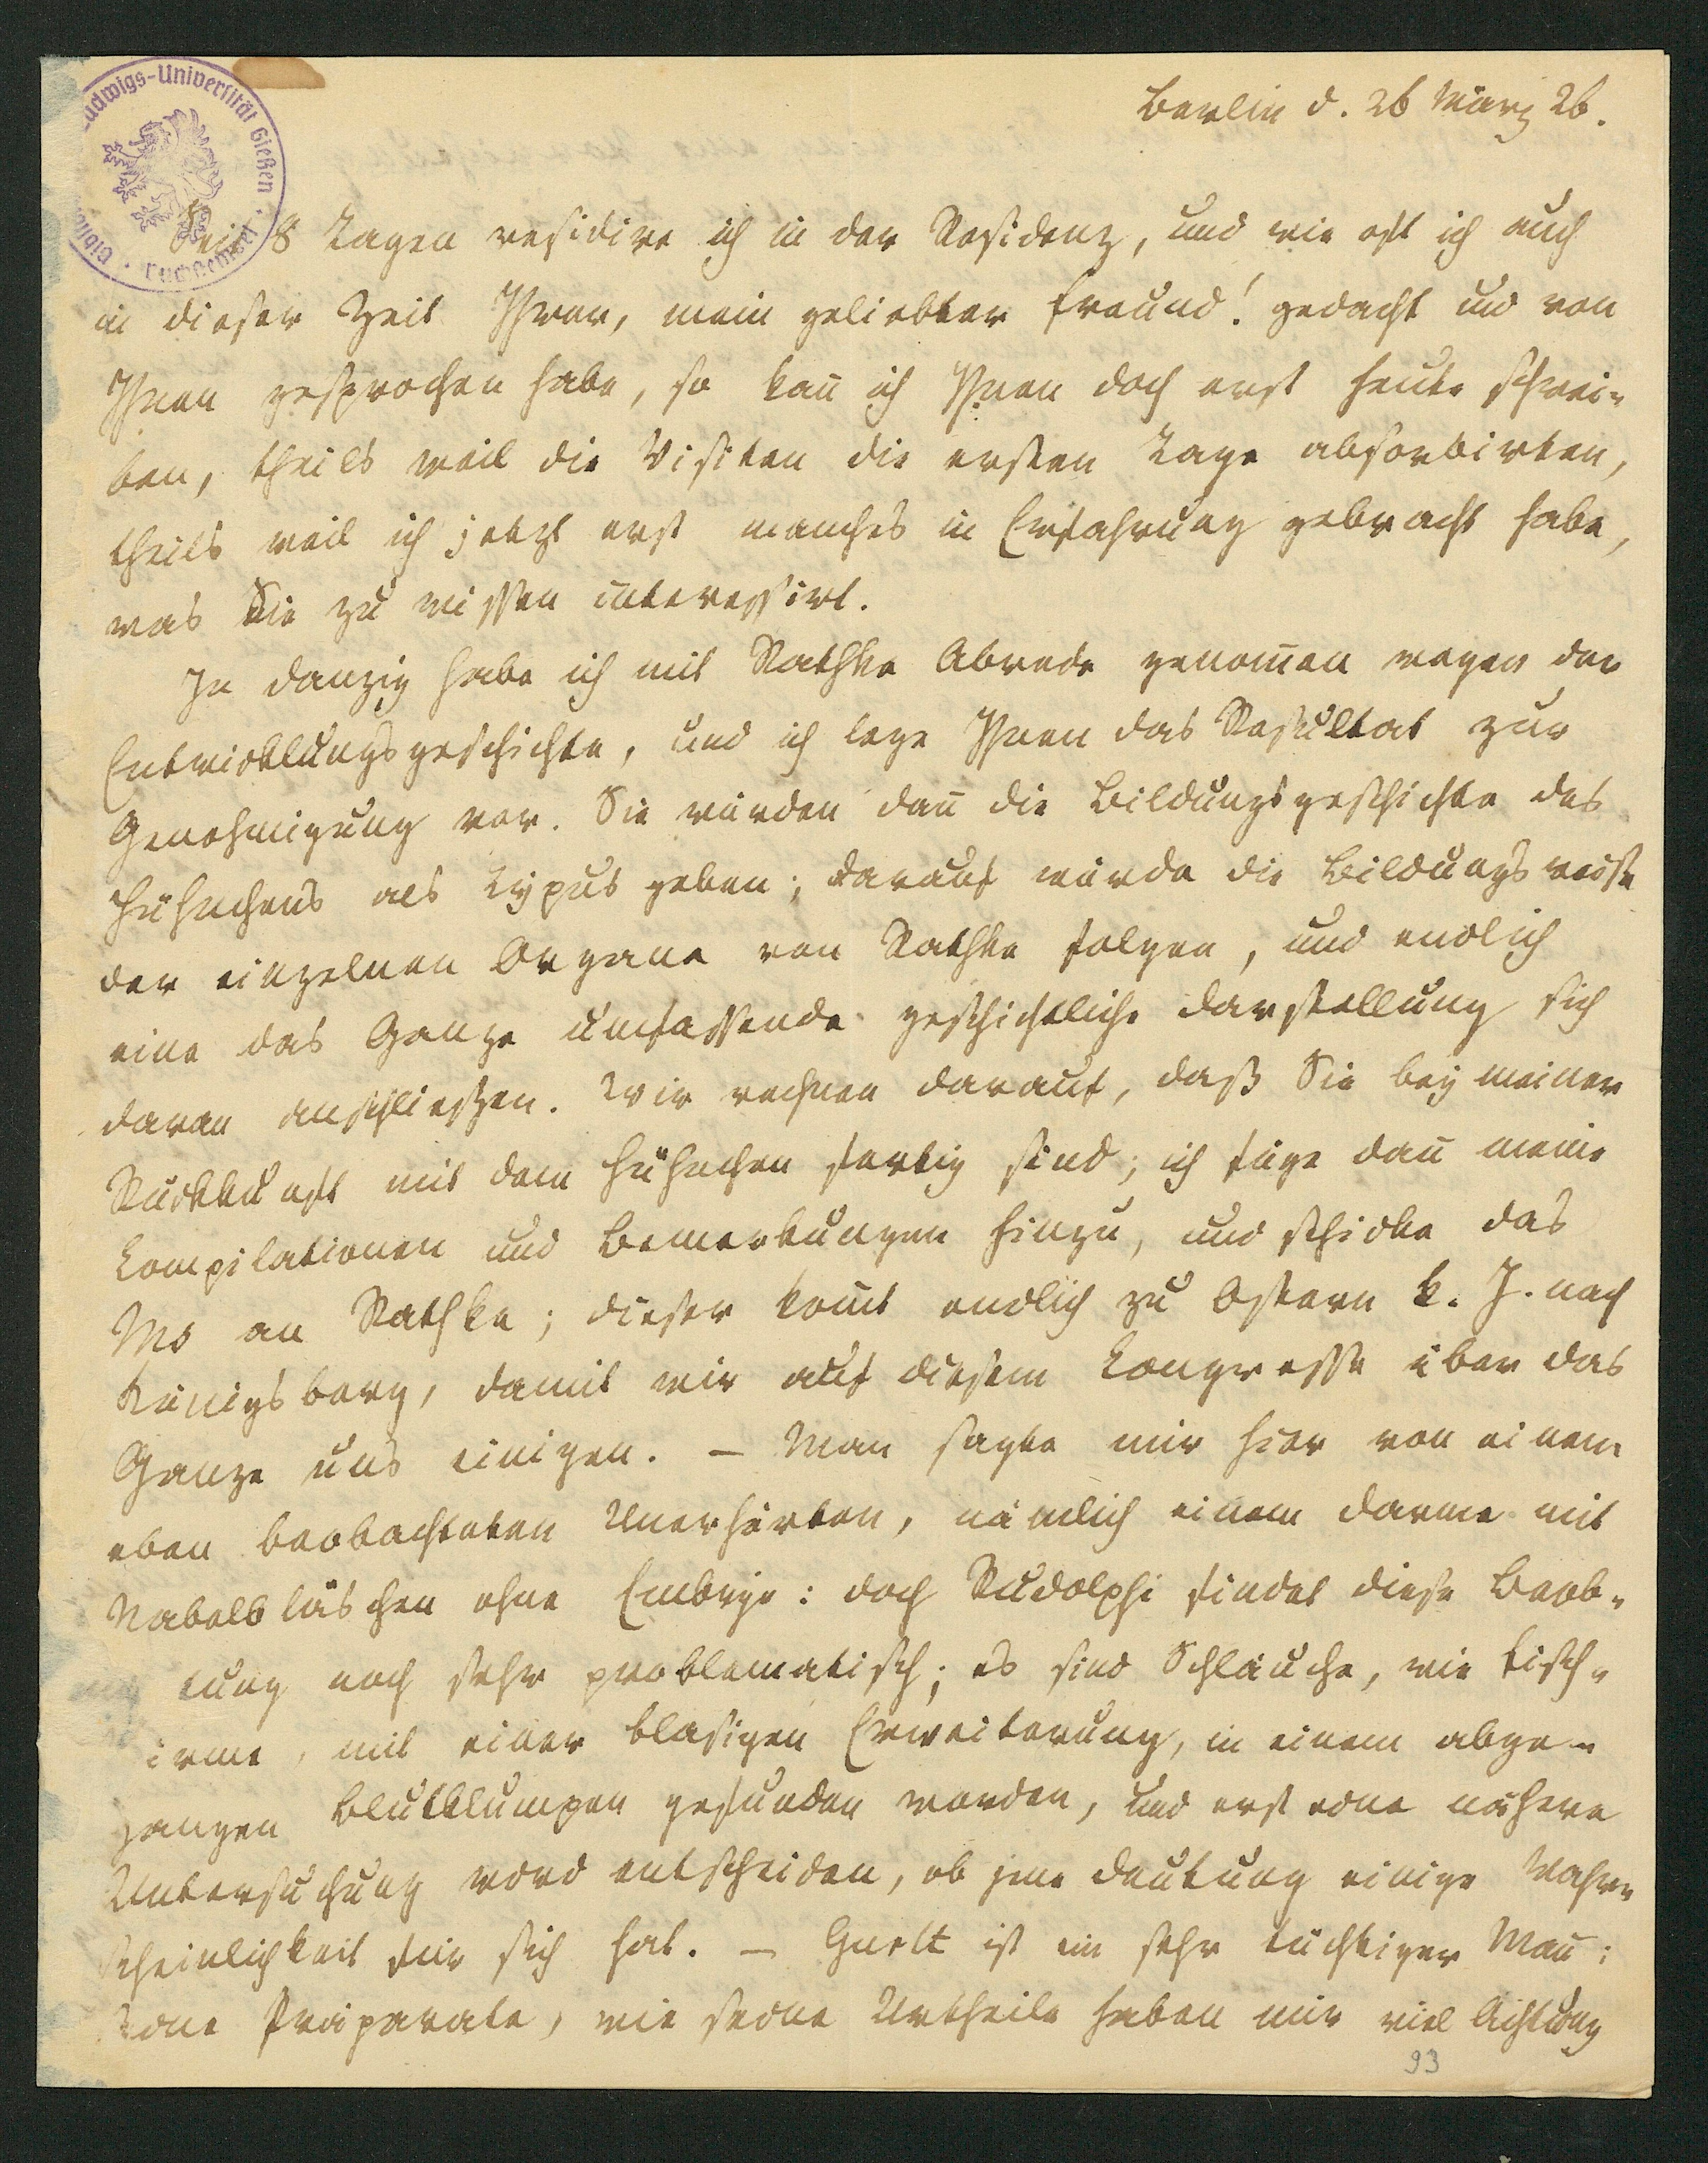 Ludwigs-Universität Gießen
Berlin d. 26 März 26.
Seit 8 Tagen residire ich in der Residenz, und wie oft ich auch
in dieser Zeit Ihrer, mein geliebter Freund! gedacht und von
Ihnen gesprochen habe, so kan̄ ich Ihnen doch erst heute schrei-
ben, theils weil die Visiten die ersten Tage absorbirten,
theils weil ich jetzt erst manches in Erfahrung gebracht habe,
was Sie zu wissen interessirt.
In Danzig habe ich mit Rathke Abrede genom̄en wegen der
Entwicklungsgeschichte, und ich lege Ihnen das Resultat zur
Genehmigung vor. Sie würden dan̄ die Bildungsgeschichte des
Hühnchens als Typus geben; darauf würde die Bildungsweise
der einzelnen Organe von Rathke folgen, und endlich
eine das Ganze umfassende geschichtliche Darstellung sich
daran anschließen. Wir rechnen darauf, daß Sie bey meiner
Rückkunft mit dem Hühnchen fertig sind; ich füge dan̄ meine
Compilationen und Bemerkungen hinzu, und schicke das
Ms an Rathke; dieser kom̄t endlich zu Ostern k. J. nach
Königsberg, damit wir auf diesem Congresse über das
Ganze uns einigen. – Man sagte mir hier von einem
eben beobachteten Unerhörten, nämlich einem Darme mit
Nabelbläschen ohne Embryo: doch Rudolphi findet diese Beob-
tung noch sehr problematisch; es sind Schläuche, wie Fisch-
irme, mit einer blasigen Erweiterung, in einem abge-
gangen Blutklumpen gefunden worden, und erst eine nähere
Untersuchung wird entscheiden, ob jene Deutung einige Wahr-
scheinlichkeit für sich hat. – Gurlt ist ein sehr tüchtiger Man̄:
Seine Präparate, wie seine Urtheile haben mir viel Achtung
93